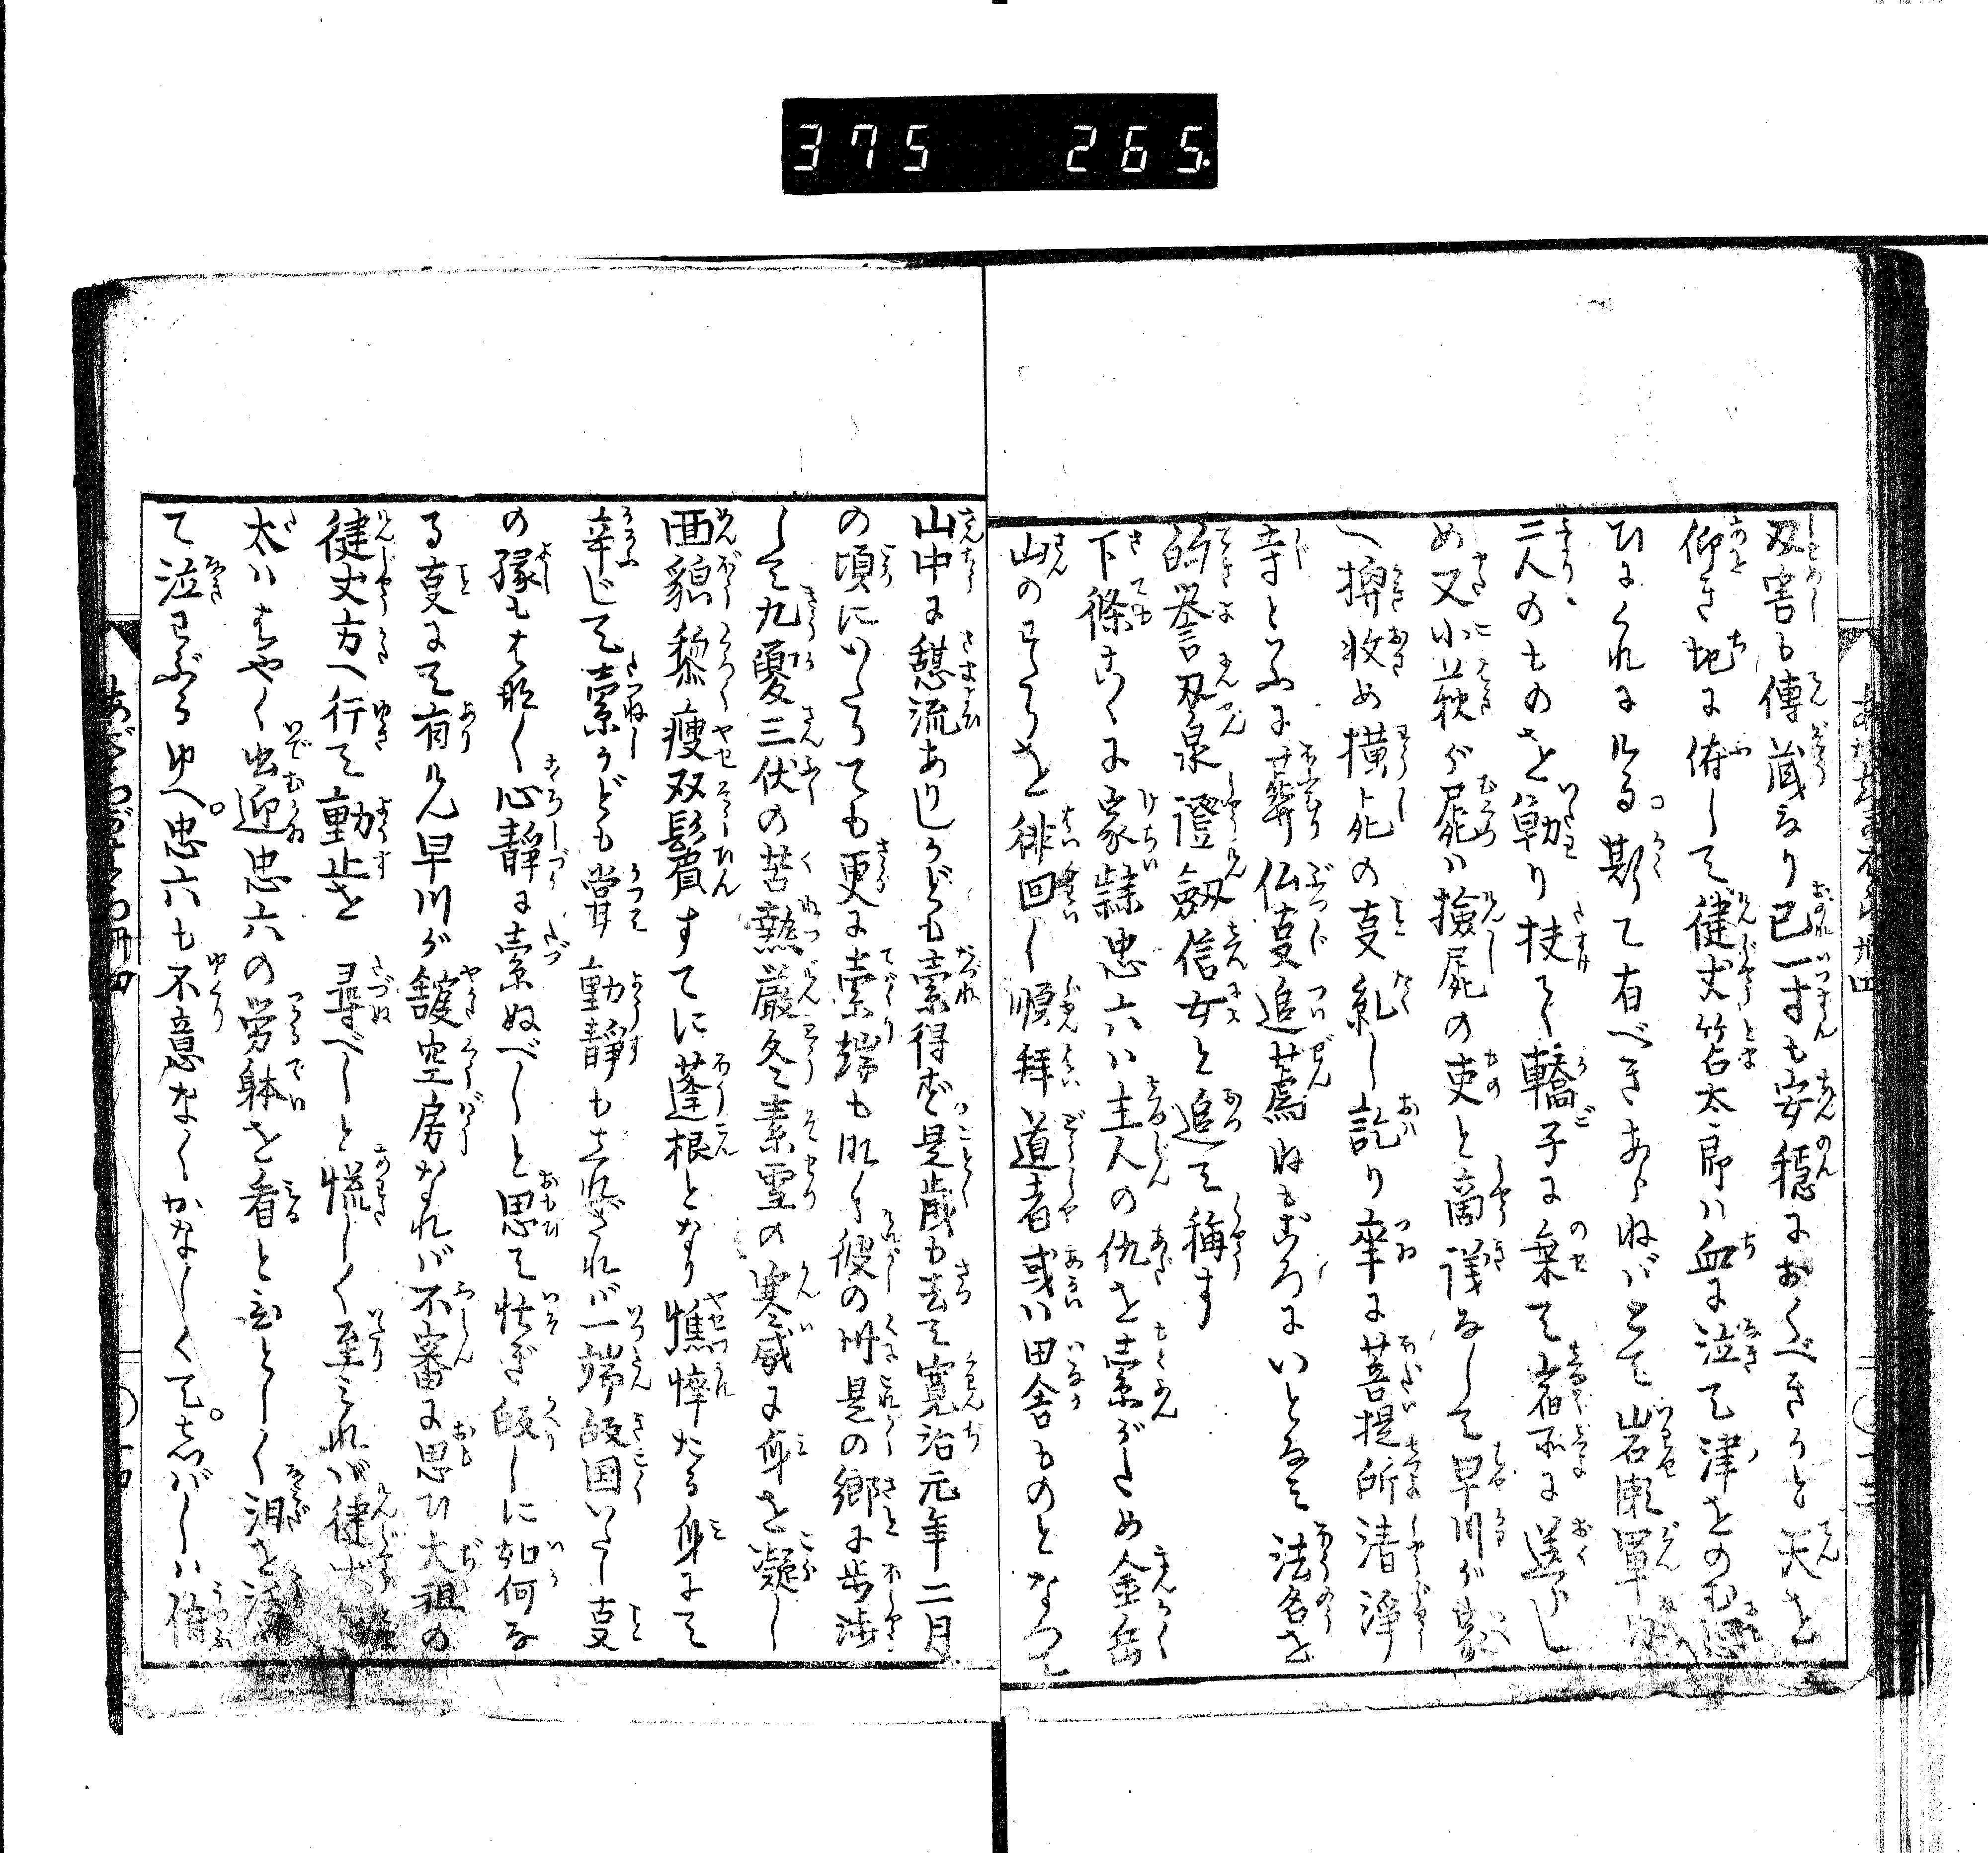 375 265.
刃害も傳蔵なり已一すも安穏におくべきかと天を
仰き地に俯して健丈笘太郎ハ血に泣て津をのむ
ひにくれにける斯て有べきあらねバとて岩瀬軍
二人のものを勦り扶て轎子に乗て宿所に送らし
め又小萩が屍ハ撿屍の吏と商議なして早川が
へ擗收め横死の叓糺し訖り卒に菩提所清浄
寺といふに葬仏叓追薦ねもごろにいとなミ法名を
誉刃泉證劔信女と追て稱す
下條こゝに家隷忠六ハ主人の仇を索がため金岳
山のそこらを徘回し順拝道者或ハ田舎ものとなつて
山中に憩流ありしかども索得ず是歳も去て寛治元年二月
の頃にいたつても更に索端もなく彼の州是の郷に歩渉
して九夏三伏の苦熱厳冬素雪の寒威に身を凝し
面貌黎痩双鬢すてに蓬根となり憔悴たる身にて
辛じて索かども當動静も立ざれバ一端皈国いたし支
の縁もはなく心静に索ぬべしと思て忙ぎ皈しに如何な
る叓にて有けん早川が舘空房なれバ不審に思ひ大祖の
健丈方へ行て動止を尋べしと慌しく至これバ健
太ハはやく出迎忠六の労躰を看とひとしく泪を
て泣さぶるゆへ。忠六も不意なくかなしくて。志バしハ俯